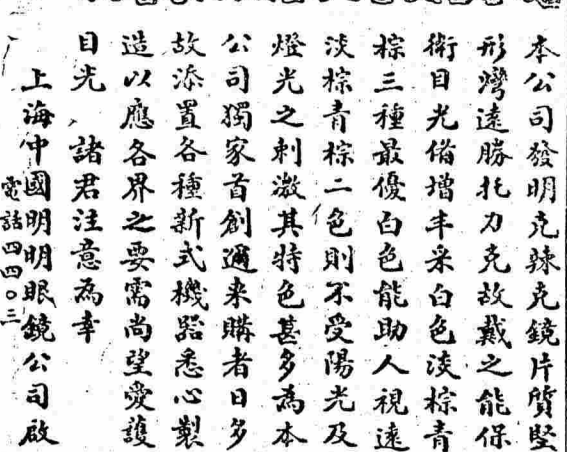 本公司發明克辣克鏡片質堅
形灣遠勝托力克故戴之能保
衛目光偹增丰采白色淡棕青
棕三種最優白色能助人視遠
淡棕青棕二色則不受陽光及
燈光之刺激其特色甚多為本
公司獨家首創邇来購者日多
故添置各種新式機器悉心製
造以應各界之要需尚望愛護
目光　諸君注意為幸
上海中國明明眼鏡公司啟
電話四四〇三